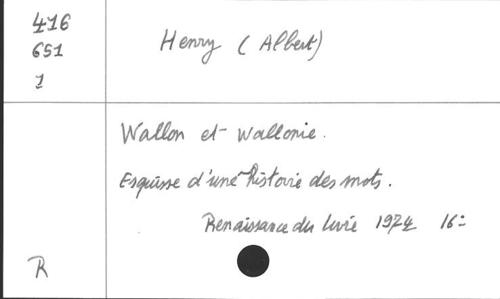 416
651
1
Henry (Albert)
Wallon et Wallonie.
Esquisse d'une histoire des mots.
Renaissance du livre 1974 16=
R